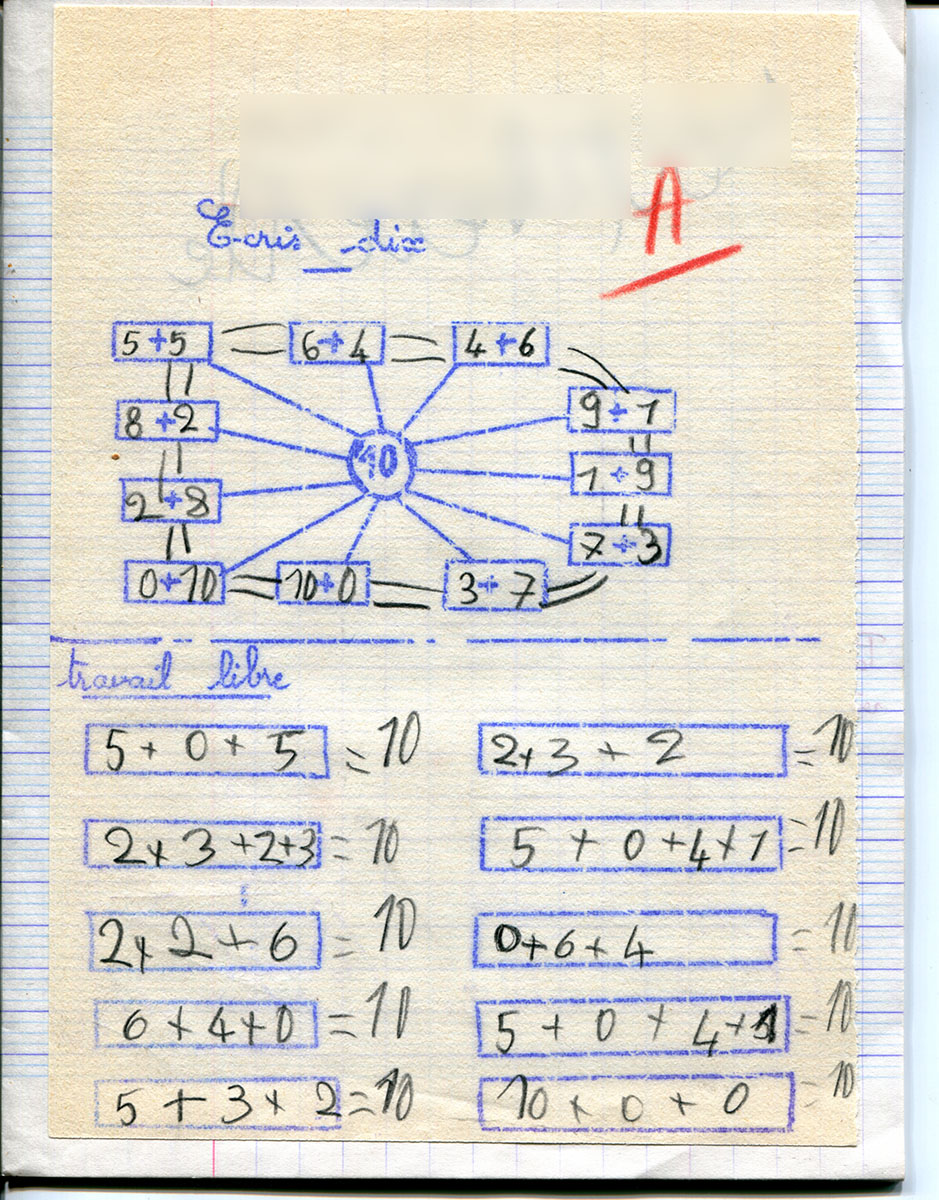 A
Ecris dix
5+5 = 6+4 = 4+6
9+1
8+2
10
1+9
2+8
7+3
0+10 = 10+0 = 3+7
travail libre
5+0+5 = 10 2+3+2 = 10
2+3+2+3 = 10 5+0+4+1 = 10
2+2+6 = 10 0+6+4 = 10
6+4+0 = 10 5+0+4+1 = 10
5+3+2 = 10 10+0+0 = 10